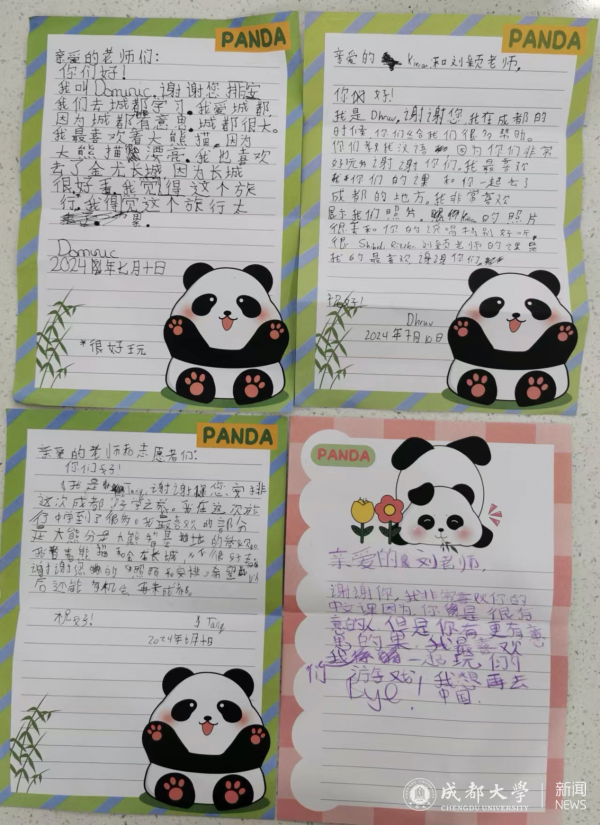 PANDA
亲爱的老师们:
你们好!
我叫Dominic,谢谢您排安
我们去城都学习.我爱城都,
因为城都有意思.城都很大。
我最喜欢看大熊猫,因为
大熊猫漂亮.我也喜欢
去了金龙长城因为长城
很好重.我觉得这个旅
行.我得觉这个旅行太
Dominic
2024年七月十日
*很好玩
PANDA
亲爱的 和刘颖老师,
你们好!
我是Dhruv,谢谢您.我在成都的
时候你们给我们很多帮助。
你们 因为你们非常
好玩 谢谢你们.我最喜欢
你们的课和你一起去了
成都的地方.我非常喜欢
我们照片. 的照片
很美和你的 唱特别好听。
很 刘颖老师的课是
我的最喜欢 谢谢你们.
祝好!
Dhruv
2024年7月10日
PANDA
亲爱的老师和志愿者们:
你们好!
我是 谢谢您安排
这次成都 学之旅。我在这次旅
行 到了很多。我最喜欢的部分
是大熊 基地的
我看 熊猫和金龙长城,
谢谢您 的照顾和安排,希望以
后还能有机会再来成都。
祝好!
2024年七月十日
PANDA
亲爱的刘老师,
谢谢你,我非常喜欢你的
中文课因为你 是很有
意的人但是你有更有意
的果.我最喜欢
我 一起玩
们 游戏!我想再去
Lyel 中国.
成都大学
CHENGDU UNIVERSITY
新闻
NEWS